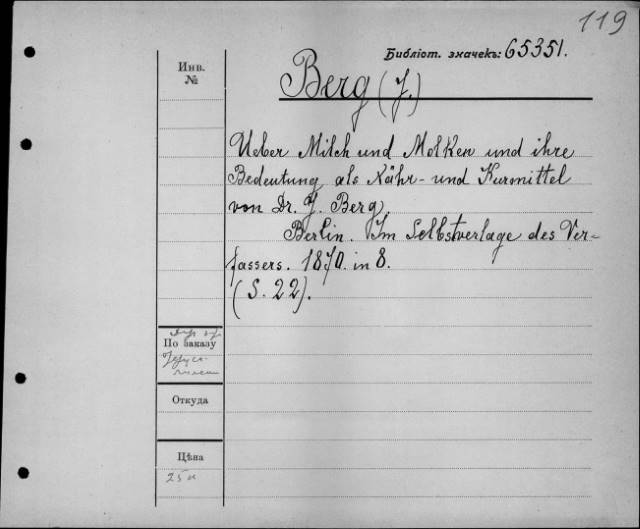 119
Библіот. значекъ: 65351.
Инв.
№
Berg (J.)
Ueber Milch und Molken und ihre
Bedeutung als Nähr- und Kurmittel
von Dr. J. Berg,
Berlin. Im Selbstverlage des Ver-
fassers. 1870. in 8.
(S. 22).
По заказу
Откуда
Цѣна
25